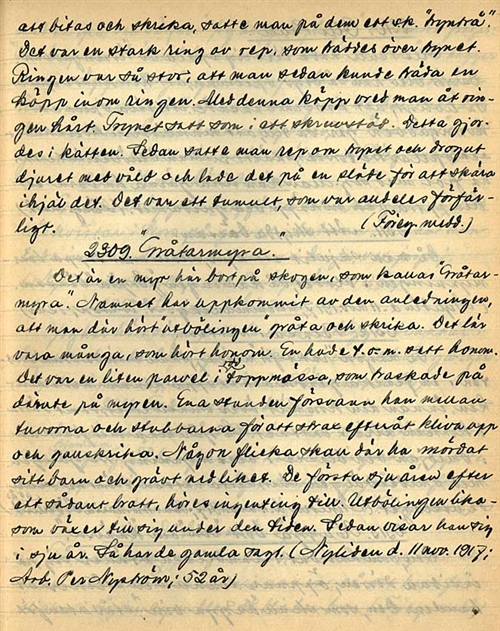 att bitas och skrika, satte man på dem ett sk. "tryntrå".
Det var en stark ring av rep, som träddes över trynet.
Ringen var så stor, att man sedan kunde träda en
käpp inom ringen. Med denna käpp vred man åt rin-
gen hårt. Trynet satt som i ett skruvstäd. Detta gjor-
des i kätten. Sedan satte man rep om trynet och drog ut
djuret med våld och lade det på en släde för att skära
ihjäl det. Det var ett tumult, som var alldeles förfär-
ligt. (Föreg. medd.)
2309. "Gråtarmyra."
Det är en myr här bort på skogen, som kallas "Gråtar-
myra". Namnet har uppkommit av den anledningen,
att man där hört "utbölingen" gråta och skrika. Det lär
vara många, som hört honom. En hade t.o.m. sett honom.
Det var en liten parvel i röd toppmössa, som traskade på
därute på myren. Ena stunden försvann han mellan
tuvorna och stubbarna för att strax efteråt kliva upp
och gallskrika. Någon flicka skall där ha mördat
sitt barn och grävt ned liket. De första sju åren efter
ett sådant bratt, höres ingenting till. Utbölingen lika-
som växer till sig under den tiden. Sedan visar han sig
i sju år. Så har de gamla sagt. (Nyliden d. 11 nov. 1917;
Arb. Per Nyström; 52 år)